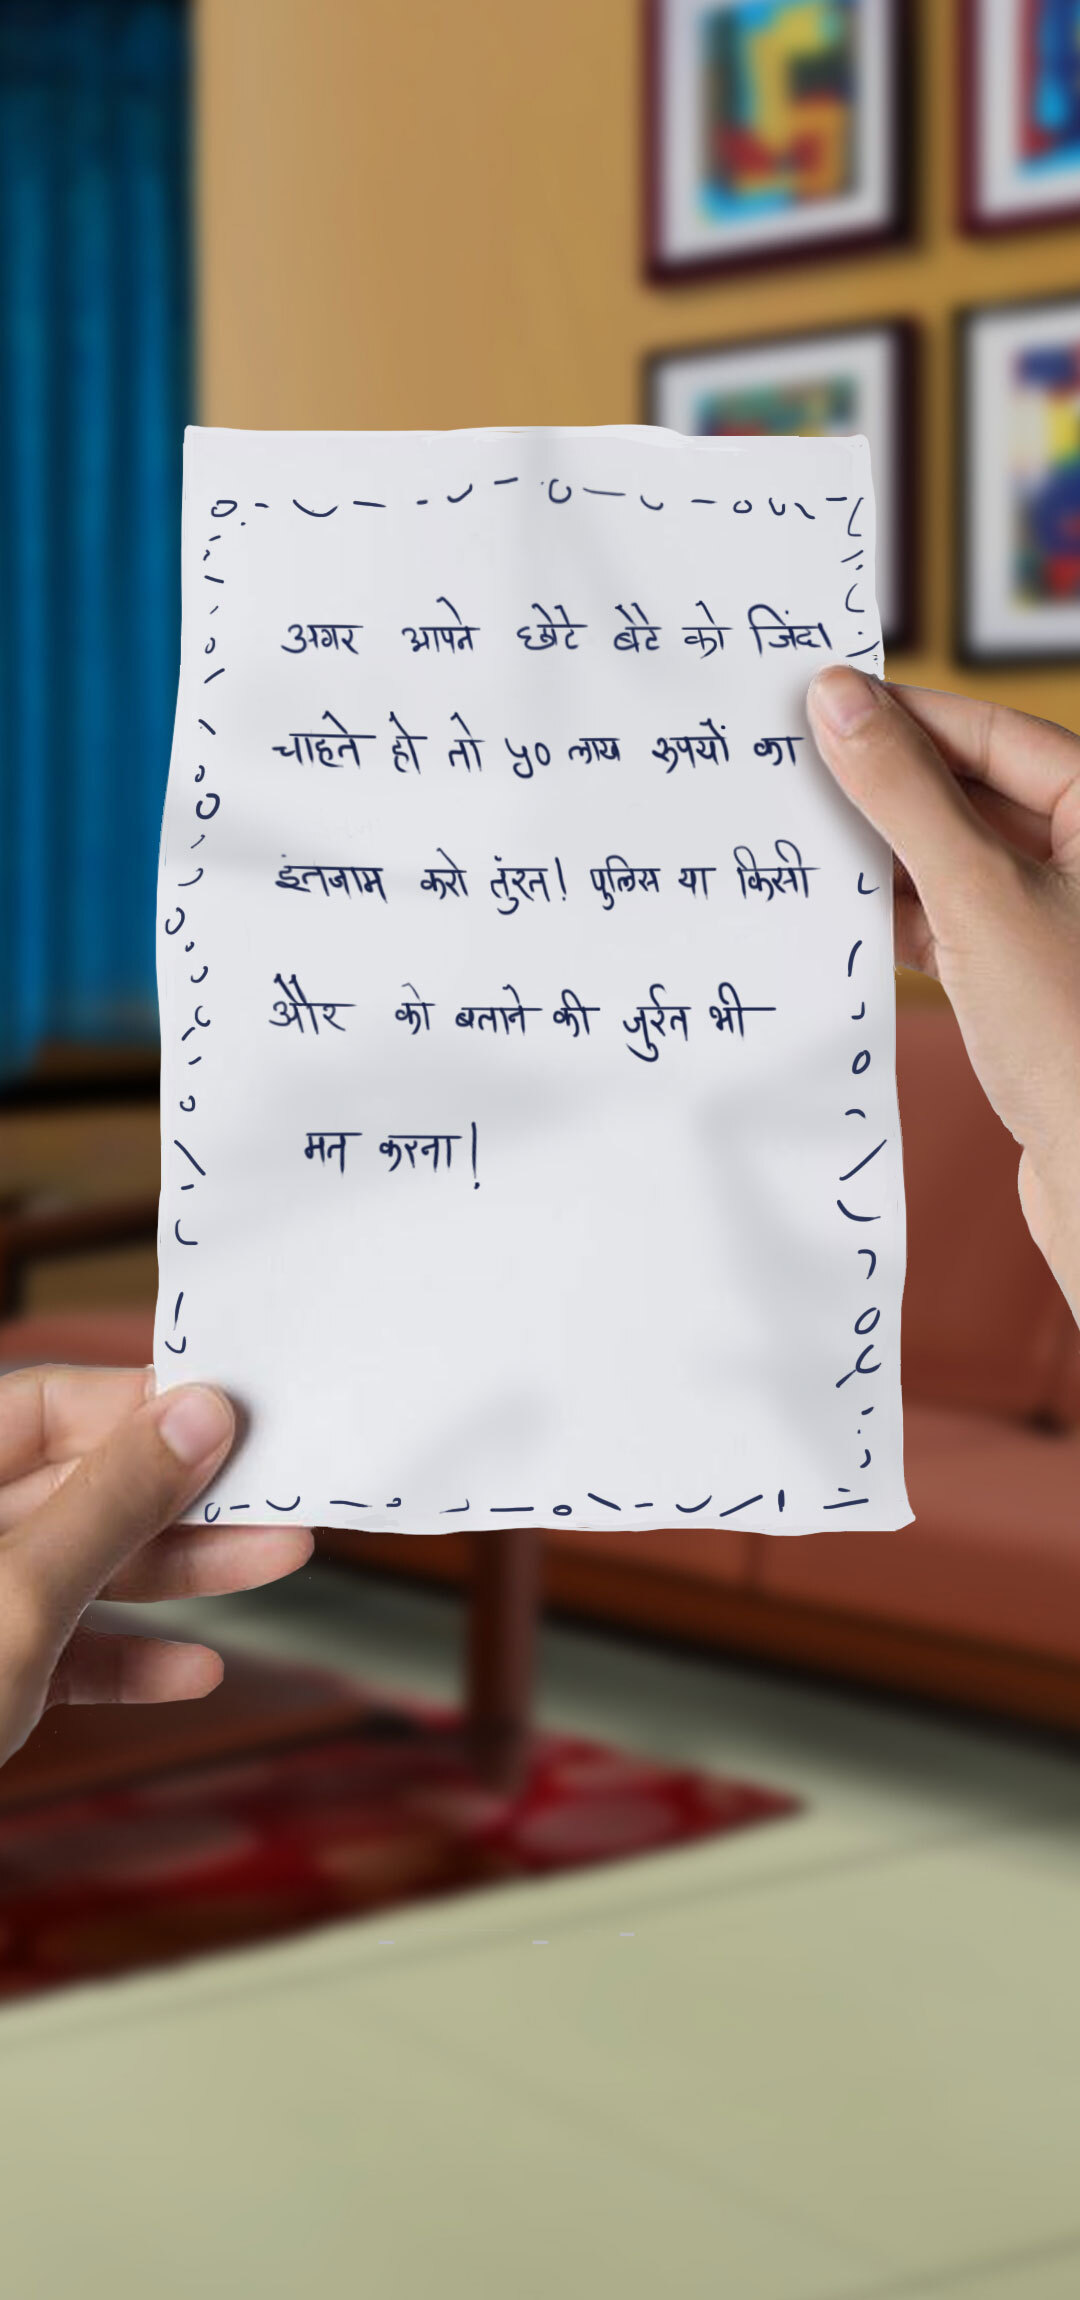 अगर आपने छोटे बेटे को जिंदा
चाहते हो तो ५० लाख रुपयों का
इंतजाम करो तुंरत! पुलिस या किसी
और को बताने की जुर्रत भी
मत करना!